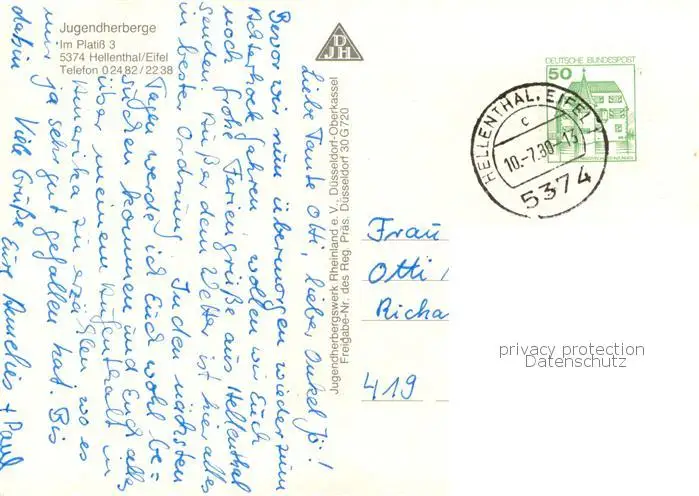 Jugendherberge
Im Platiß 3
5374 Hellenthal/Eifel
Telefon 02482/2238
DJH
Jugendherbergswerk Rheinland e. V., Düsseldorf-Oberkassel
Freigabe-Nr. des Reg. Präs. Düsseldorf 30 G 720
Liebe Tante Otti, lieber Onkel Jö!
Bevor wir nun übermorgen wieder zum
Ahrhock fahren, wollen wir Euch
noch frohe Feriengrüße aus Hellenthal
senden. Außer dem Wetter ist hier alles
in bester Ordnung. In den nächsten
Tagen werde ich Euch wohl be=
suchen kommen und Euch alles
über meinen Aufenthalt in
Amerika zu erzählen, wo es
mir ja sehr gut gefallen hat. Bis
dahin Viele Grüße Eure Annelies + Paul
DEUTSCHE BUNDESPOST
50
HELLENTHAL, EIFEL 1
c
10.-7.80-13
5374
Frau
Otti
Richa
419
privacy protection
Datenschutz